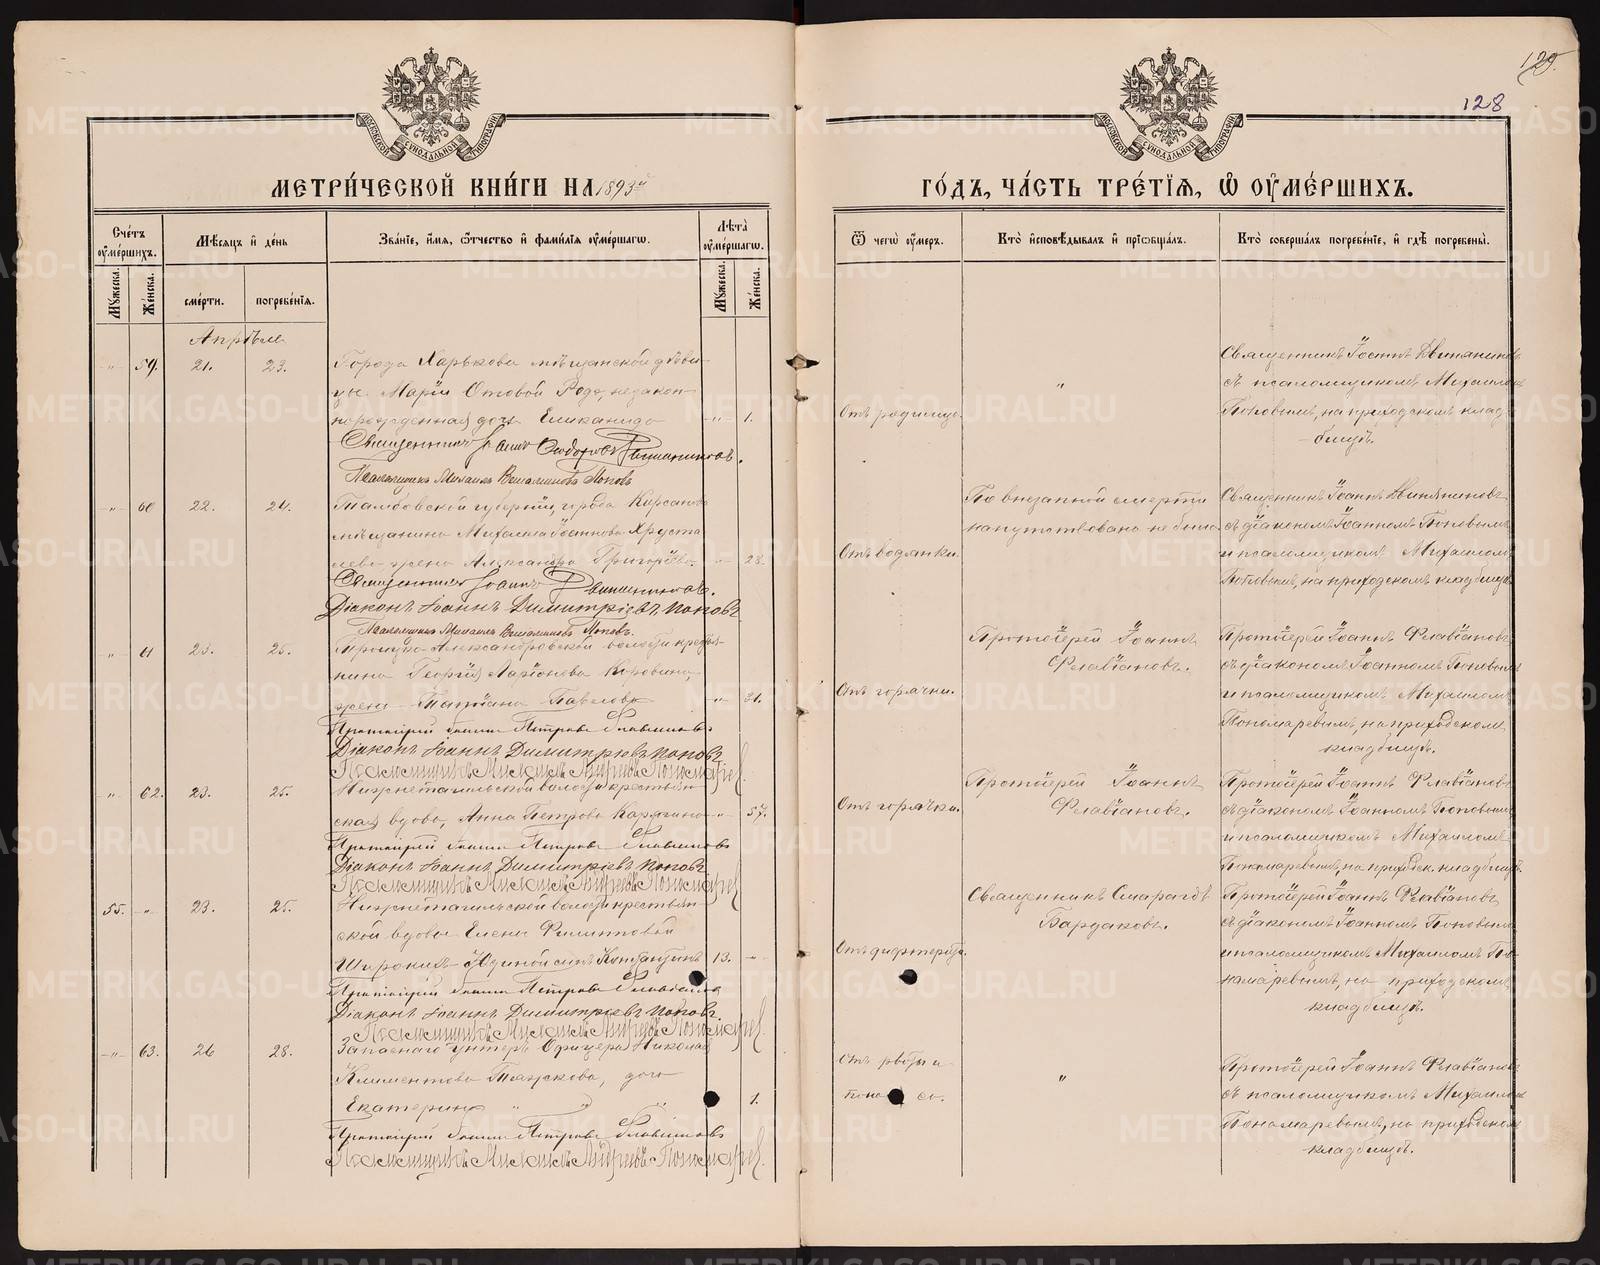 129.
128
МОСКОВСКОЙ СУНОДАЛЬНОЙ ТИПОГРАФІИ
МОСКОВСКОЙ СУНОДАЛЬНОЙ ТИПОГРАФІИ
МЕТРИ́ЧЕСКОЙ КНИ́ГИ НА 1893й
ГО́ДЪ, ЧА́СТЬ ТРЕ́ТІѦ, Ѡ҆ ОУ҆МЕ́РШИХЪ.
Сче́тъ оу҆ме́ршихъ.
Мꙋжеска.
Же́нска.
Мѣ́сяцъ и҆ де́нь
сме́рти.
погребе́нїѧ.
Зва́нїе, и҆́мѧ, ѻ҆́тчество и҆ фами́лїѧ оу҆ме́ршагѡ.
Лѣ́та оу҆ме́ршагѡ.
Мꙋжеска.
Же́нска.
Ѿ чегѡ̀ оу҆́меръ.
Кто̀ и҆сповѣ́дывалъ и҆ прїѡбща́лъ.
Кто̀ соверша́лъ погребе́нїе, и҆ гдѣ̀ погребены̀.
Апрѣль
-"- 59. 21. 23.
Города Харькова мѣщанской дѣви-
цы Маріи Отовой Роде, незакон-
норожденная дочь
-"- 1.
Священникъ Іоаннъ Ѳеодоровъ Двиняниновъ.
Псаломщикъ Михаилъ Поповъ
Отъ родимца.
"
Священникъ Іоаннъ Двиняниновъ
съ псаломщикомъ Михаиломъ
Поповымъ, на приходскомъ клад-
-бищѣ.
-"- 60 22. 24.
Тамбовской губерніи, города Кирсанова
мѣщанина Михаила Іоаннова Хруста
лева жена Александра Григорьева.
-"- 28.
Священникъ Іоаннъ Двиняниновъ.
Діаконъ Іоаннъ Димитріевъ Поповъ
Псаломщикъ Михаилъ Поповъ.
Отъ водянки.
По внезапной смерти
напутствована не была.
Священникъ Іоаннъ Двиняниновъ
съ діакономъ Іоанномъ Поповымъ
и псаломщикомъ Михаиломъ
Поповымъ, на приходскомъ кладбищѣ.
-"- 61 23. 25.
Александровской волости кресть-
нина Георгія Ларіонова Коровина,
жена Татіана Павлова
-"- 31.
Протоіерей Іоаннъ Петровъ Флавіановъ
Діаконъ Іоаннъ Димитріевъ Поповъ
Псаломщикъ Михаилъ Андреевъ Пономаревъ
Отъ горячки.
Протоіерей Іоаннъ
Флавіановъ.
Протоіерей Іоаннъ Флавіановъ
съ діакономъ Іоанномъ Поповымъ
и псаломщикомъ Михаиломъ
Пономаревымъ, на приходскомъ
кладбищѣ.
-"- 62. 23. 25.
Нижнетагильской волости крестьян
ская вдова, Анна Петрова Карягина
-"- 57.
Протоіерей Іоаннъ Петровъ Флавіановъ
Діаконъ Іоаннъ Димитріевъ Поповъ
Псаломщикъ Михаилъ Андреевъ Пономаревъ
Отъ горячки.
Протоіерей Іоаннъ
Флавіановъ.
Протоіерей Іоаннъ Флавіановъ
съ діакономъ Іоанномъ Поповымъ
и псаломщикомъ Михаиломъ
Пономаревымъ, на приходск. кладбищѣ.
55. -"- 23. 25.
Нижнетагильской волости крестьян
ской вдовы Елены Филипповой
Широкихъ сынъ Константинъ
13. -
Протоіерей Іоаннъ Петровъ Флавіановъ
Діаконъ Іоаннъ Димитріевъ Поповъ.
Псаломщикъ Михаилъ Андреевъ Пономаревъ
Отъ дифтерита.
Священникъ Смарагдъ
Бардаковъ.
Протоіерей Іоаннъ Флавіановъ
съ діакономъ Іоанномъ Поповымъ
и псаломщикомъ Михаиломъ По-
номаревымъ, на приходскомъ
кладбищѣ.
-"- 63. 26 28.
Запаснаго унтеръ офицера Николая
Климентова Тяжкова, дочь
Екатерина " " "
1.
Протоіерей Іоаннъ Петровъ Флавіановъ
Псаломщикъ Михаилъ Андреевъ Пономаревъ.
Отъ рвоты и
"
Протоіерей Іоаннъ Флавіановъ
съ псаломщикомъ Михаиломъ
Пономаревымъ, на приходскомъ
кладбищѣ.
METRIKI.GASO-URAL.RU